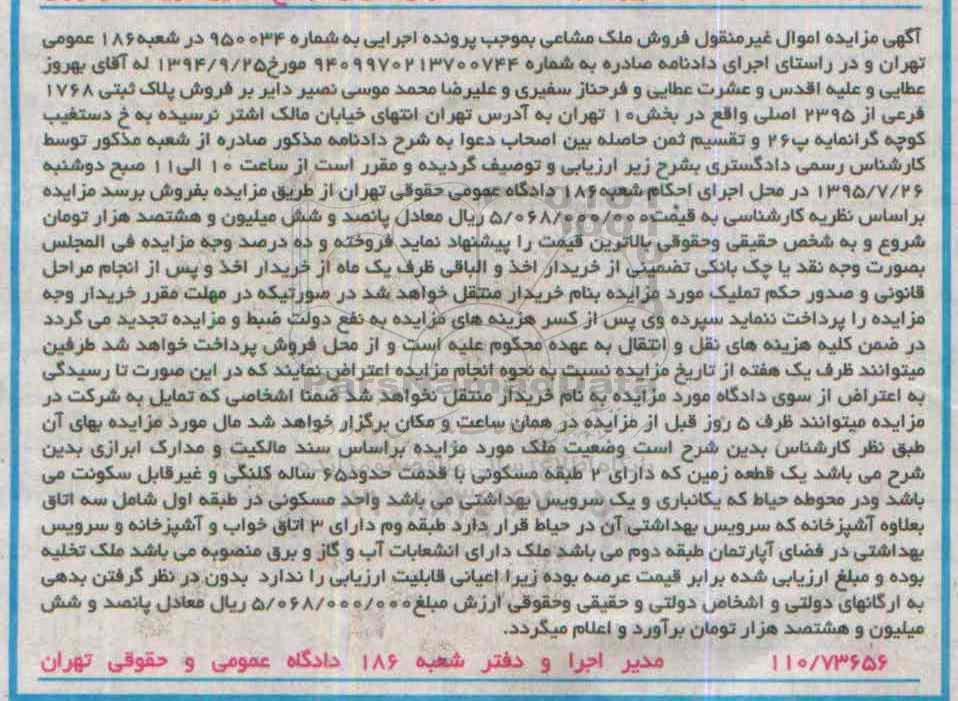 آگهی مزایده اموال غیرمنقول فروش ملک مشاعی بموجب پرونده اجرایی به شماره ۹۵۰۰۳۴ در شعبه۱۸۶ عمومی
تهران و در راستای اجرای دادنامه صادره به شماره ۹۴۰۹۹۷۰۲۱۳۷۰۰۷۴۴ مورخ۱۳۹۴/۹/۲۵ له آقای بهروز
عطایی و علیه اقدس و عشرت عطایی و فرحناز سفیری و علیرضا محمد موسی نصیر دایر بر فروش پلاک ثبتی ۱۷۶۸
فرعی از ۲۳۹۵ اصلی واقع در بخش۱۰ تهران به آدرس تهران انتهای خیابان مالک اشتر نرسیده به خ دستغیب
کوچه گرانمایه پ۲۶ و تقسیم ثمن حاصله بین اصحاب دعوا به شرح دادنامه مذکور صادره از شعبه مذکور توسط
کارشناس رسمی دادگستری بشرح زیر ارزیابی و توصیف گردیده و مقرر است از ساعت ۱۰ الی۱۱ صبح دوشنبه
۱۳۹۵/۷/۲۶ در محل اجرای احکام شعبه۱۸۶ دادگاه عمومی حقوقی تهران از طریق مزایده بفروش برسد مزایده
براساس نظریه کارشناسی به قیمت۵/۰۶۸/۰۰۰/۰۰۰ ریال معادل پانصد و شش میلیون و هشتصد هزار تومان
شروع و به شخص حقیقی وحقوقی بالاترین قیمت را پیشنهاد نماید فروخته و ده درصد وجه مزایده فی المجلس
بصورت وجه نقد یا چک بانکی تضمینی از خریدار اخذ و الباقی ظرف یک ماه از خریدار اخذ و پس از انجام مراحل
قانونی و صدور حکم تملیک مورد مزایده بنام خریدار منتقل خواهد شد در صورتیکه در مهلت مقرر خریدار وجه
مزایده را پرداخت ننماید سپرده وی پس از کسر هزینه های مزایده به نفع دولت ضبط و مزایده تجدید می گردد
در ضمن کلیه هزینه های نقل و انتقال به عهده محکوم علیه است و از محل فروش پرداخت خواهد شد طرفین
میتوانند ظرف یک هفته از تاریخ مزایده نسبت به نحوه انجام مزایده اعتراض نمایند که در این صورت تا رسیدگی
به اعتراض از سوی دادگاه مورد مزایده به نام خریدار منتقل نخواهد شد ضمنا اشخاصی که تمایل به شرکت در
مزایده میتوانند ظرف ۵ روز قبل از مزایده در همان ساعت و مکان برگزار خواهد شد مال مورد مزایده بهای آن
طبق نظر کارشناس بدین شرح است وضعیت ملک مورد مزایده براساس سند مالکیت و مدارک ابرازی بدین
شرح می باشد یک قطعه زمین که دارای ۲ طبقه مسکونی با قدمت حدود۶۵ ساله کلنگی و غیرقابل سکونت می
باشد ودر محوطه حیاط که یکانباری و یک سرویس بهداشتی می باشد واحد مسکونی در طبقه اول شامل سه اتاق
بعلاوه آشپزخانه که سرویس بهداشتی آن در حیاط قرار دارد طبقه وم دارای ۳ اتاق خواب و آشپزخانه و سرویس
بهداشتی در فضای آپارتمان طبقه دوم می باشد ملک دارای انشعابات آب و گاز و برق منصوبه می باشد ملک تخلیه
بوده و مبلغ ارزیابی شده برابر قیمت عرصه بوده زیرا اعیانی قابلیت ارزیابی را ندارد بدون در نظر گرفتن بدهی
به ارگانهای دولتی و اشخاص دولتی و حقیقی وحقوقی ارزش مبلغ۵/۰۶۸/۰۰۰/۰۰۰ ریال معادل پانصد و شش
میلیون و هشتصد هزار تومان برآورد و اعلام میگردد.
۱۱۰/۷۳۶۵۶ مدیر اجرا و دفتر شعبه ۱۸۶ دادگاه عمومی و حقوقی تهران
ParsNamadData